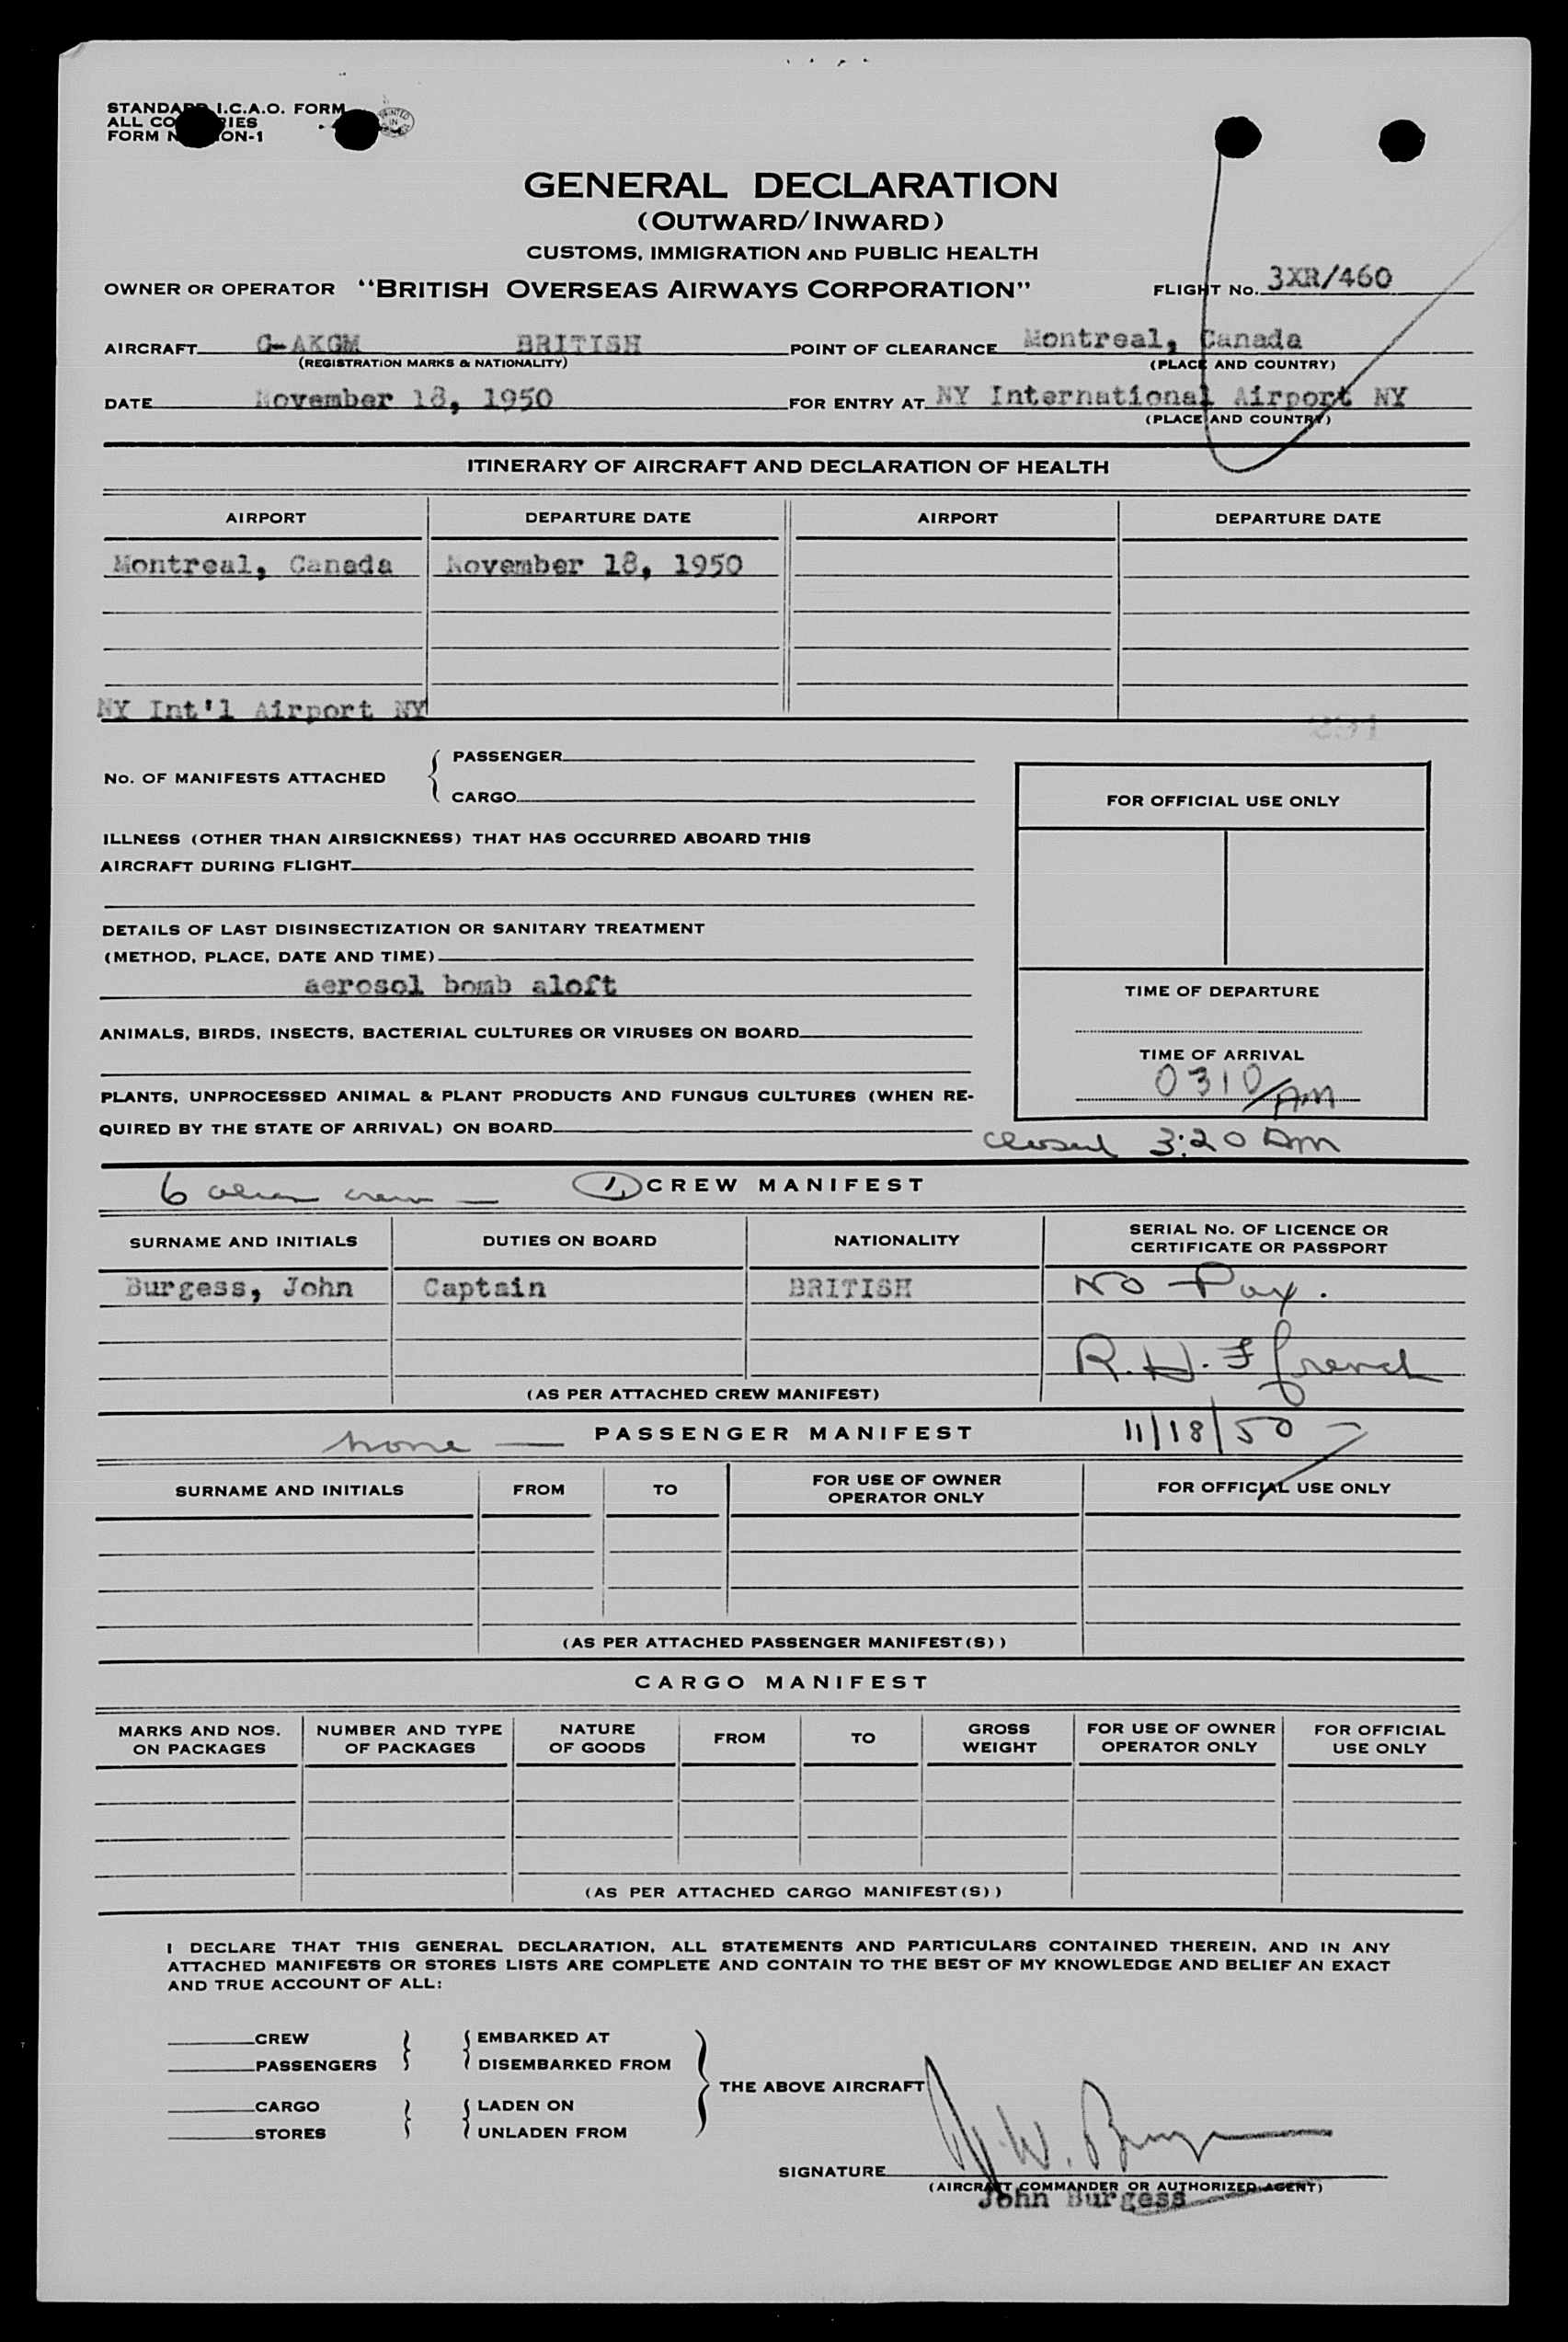 STANDARD I.C.A.O. FORM
ALL CO RIES
FORM N ON-1
PRINTED
IN
GENERAL DECLARATION
(OUTWARD/INWARD)
CUSTOMS, IMMIGRATION AND PUBLIC HEALTH
OWNER OR OPERATOR "BRITISH OVERSEAS AIRWAYS CORPORATION" FLIGHT No. 3XR/460
AIRCRAFT G-AKGM BRITISH POINT OF CLEARANCE Montreal, Canada
(REGISTRATION MARKS & NATIONALITY) (PLACE AND COUNTRY)
DATE November 18, 1950 FOR ENTRY AT NY International Airport NY
(PLACE AND COUNTRY)
ITINERARY OF AIRCRAFT AND DECLARATION OF HEALTH
AIRPORT DEPARTURE DATE AIRPORT DEPARTURE DATE
Montreal, Canada November 18, 1950
NY Int'l Airport NY
No. OF MANIFESTS ATTACHED { PASSENGER
CARGO
FOR OFFICIAL USE ONLY
ILLNESS (OTHER THAN AIRSICKNESS) THAT HAS OCCURRED ABOARD THIS
AIRCRAFT DURING FLIGHT
DETAILS OF LAST DISINSECTIZATION OR SANITARY TREATMENT
(METHOD, PLACE, DATE AND TIME)
aerosol bomb aloft
TIME OF DEPARTURE
ANIMALS, BIRDS, INSECTS, BACTERIAL CULTURES OR VIRUSES ON BOARD
TIME OF ARRIVAL
0310/AM
PLANTS, UNPROCESSED ANIMAL & PLANT PRODUCTS AND FUNGUS CULTURES (WHEN RE-
QUIRED BY THE STATE OF ARRIVAL) ON BOARD
closed 3:20 AM
6 alien crew — 1, CREW MANIFEST
SURNAME AND INITIALS DUTIES ON BOARD NATIONALITY SERIAL No. OF LICENCE OR
CERTIFICATE OR PASSPORT
Burgess, John Captain BRITISH No Pax.
R.H.
(AS PER ATTACHED CREW MANIFEST)
none — PASSENGER MANIFEST 11/18/50
SURNAME AND INITIALS FROM TO FOR USE OF OWNER
OPERATOR ONLY FOR OFFICIAL USE ONLY
(AS PER ATTACHED PASSENGER MANIFEST(S))
CARGO MANIFEST
MARKS AND NOS.
ON PACKAGES NUMBER AND TYPE
OF PACKAGES NATURE
OF GOODS FROM TO GROSS
WEIGHT FOR USE OF OWNER
OPERATOR ONLY FOR OFFICIAL
USE ONLY
(AS PER ATTACHED CARGO MANIFEST(S))
I DECLARE THAT THIS GENERAL DECLARATION, ALL STATEMENTS AND PARTICULARS CONTAINED THEREIN, AND IN ANY
ATTACHED MANIFESTS OR STORES LISTS ARE COMPLETE AND CONTAIN TO THE BEST OF MY KNOWLEDGE AND BELIEF AN EXACT
AND TRUE ACCOUNT OF ALL:
CREW } { EMBARKED AT
PASSENGERS DISEMBARKED FROM
THE ABOVE AIRCRAFT
CARGO } { LADEN ON
STORES UNLADEN FROM
SIGNATURE J.W. Burgess
(AIRCRAFT COMMANDER OR AUTHORIZED AGENT)
John Burgess